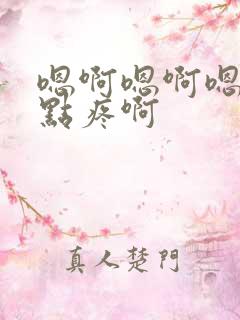 嗯啊嗯啊嗯
點疼啊
真人楚門